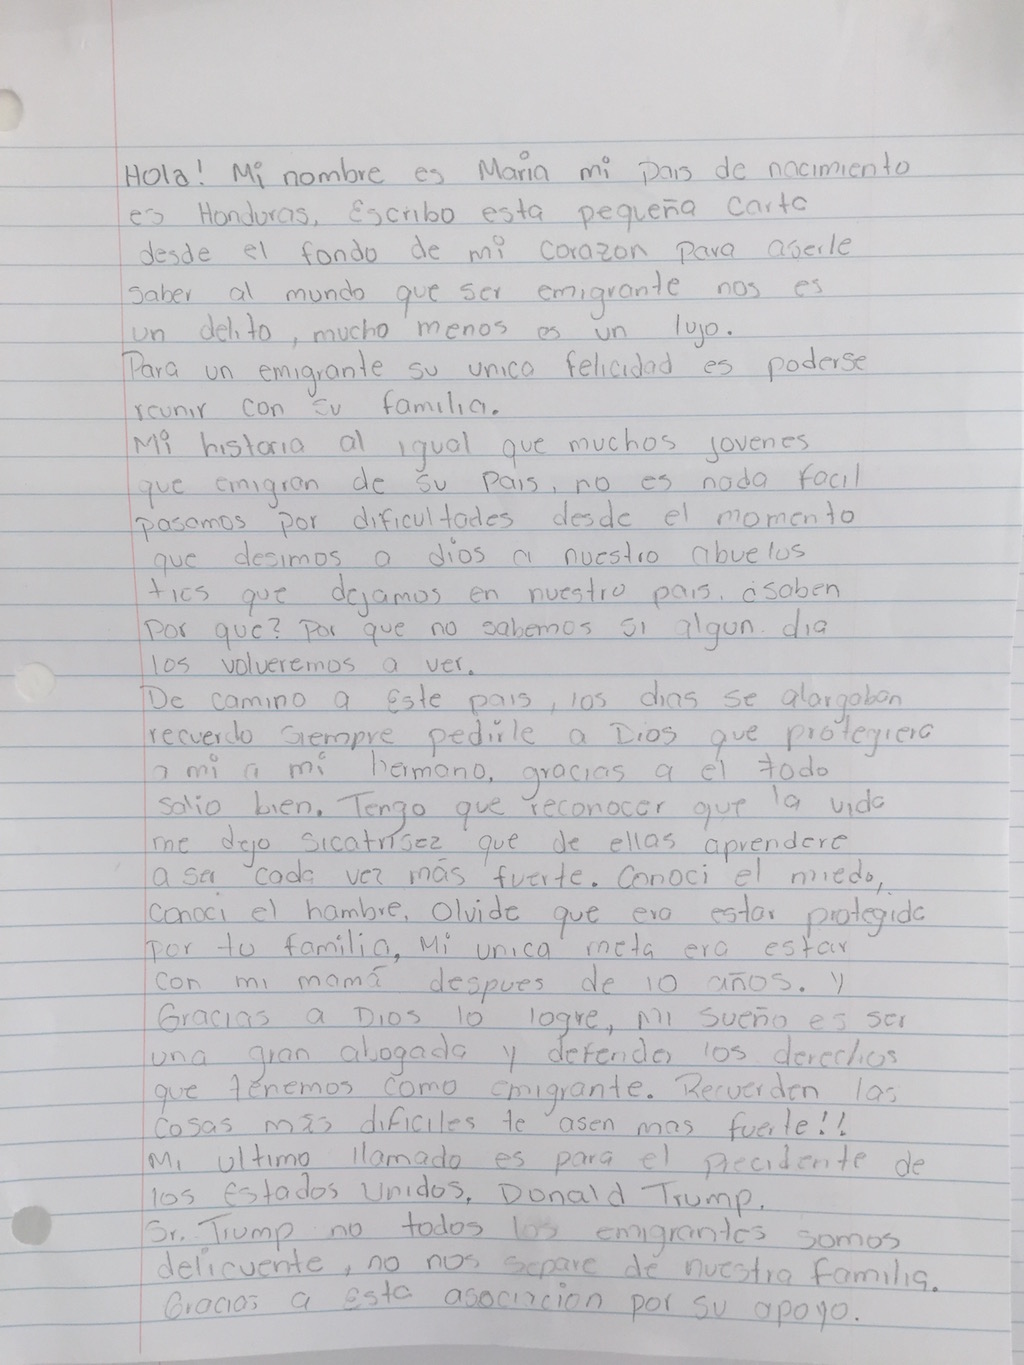 Hola! Mi nombre es Maria mi pais de nacimiento
es Honduras, Escribo esta pequeña carta
desde el fondo de mi corazon para aserle
saber al mundo que ser emigrante nos es
un delito, mucho menos es un lujo.
Para un emigrante su unica felicidad es poderse
reunir con su familia.
Mi historia al igual que muchos jovenes
que emigran de su pais, no es nada facil
pasamos por dificultades desde el momento
que desimos a dios a nuestro abuelos
tios que dejamos en nuestro pais. ¿saben
por que? Por que no sabemos si algun dia
los volveremos a ver.
De camino a este pais, los dias se alargaban
recuerdo siempre pedirle a Dios que protegiera
a mi a mi hermano, gracias a el todo
salio bien. Tengo que reconocer que la vida
me dejo sicatrisez que de ellas aprendere
a ser cada vez más fuerte. Conoci el miedo,
conoci el hambre. Olvide que era estar protegida
por tu familia, Mi unica meta era estar
con mi mamá despues de 10 años. y
Gracias a Dios lo logre, mi sueño es ser
una gran abogada y defender los derechos
que tenemos como emigrante. Recuerden las
cosas más dificiles te asen mas fuerte!!
Mi ultimo llamado es para el precidente de
los Estados Unidos, Donald Trump.
Sr. Trump no todos los emigrantes somos
delicuente, no nos separe de nuestra familia.
Gracias a esta asociacion por su apoyo.